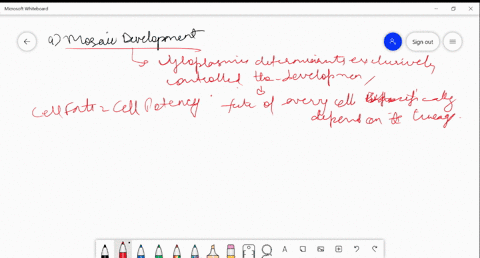 Microsoft Whiteboard
Sign out
a) Mosaic Development
→ Cytoplasmic determinants exclusively
controlled the development
Cell Fate = Cell Potency
fate of every cell specifically
depend on its lineage.
A